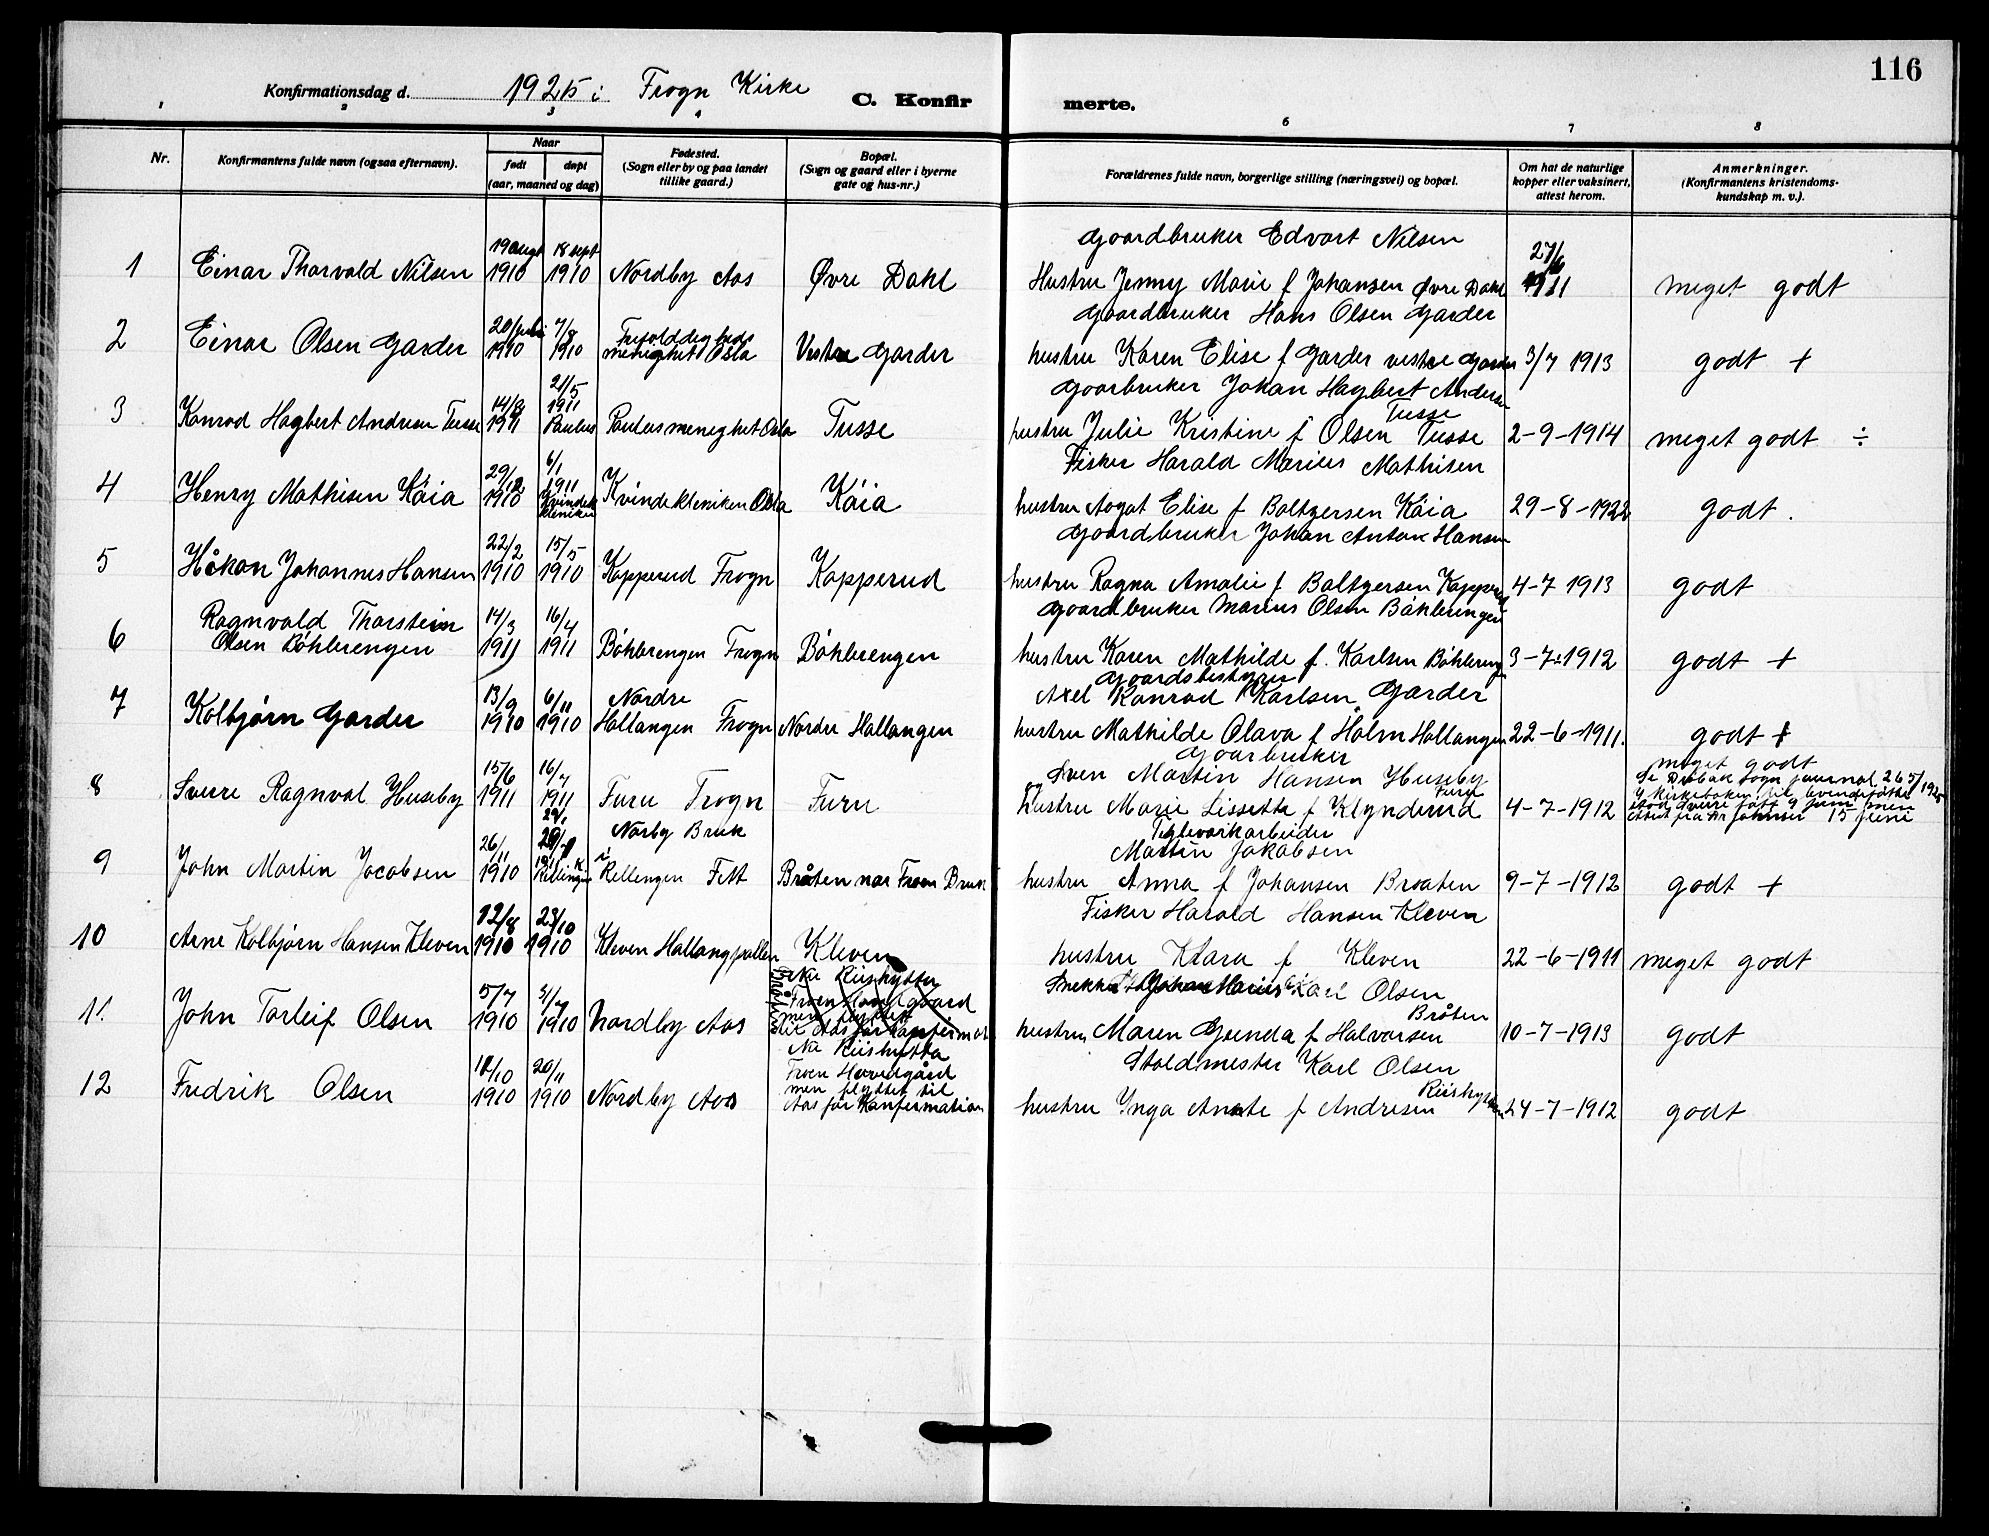 116
Konfirmationsdag d. 1925 i Frogn Kirke C. Konfirmerte.
1 2 3 4 6 7 8
Nr.
Konfirmantens fulde navn (ogsaa efternavn).
Naar
født døpt
(aar, maaned og dag)
Fødested.
(Sogn eller by og paa landet
tillike gaard.)
Bopæl.
(Sogn og gaard eller i byerne
gate og hus-nr.)
Forældrenes fulde navn, borgerlige stilling (næringsvei) og bopæl.
Om hat de naturlige
kopper eller vaksinert,
attest herom.
Anmerkninger.
(Konfirmantens kristendoms-
kundskap m. v.).
gaardbruker Edvart Nilsen
19 augt 18 sept 27/6
1 Einar Thorvald Nilsen 1910 1910 Nordby Aas Øvre Dahl Hustru Jenny Marie f Johansen Øvre Dahl 1911 meget godt
gaardbruker Hans Olsen Garder
2 Einar Olsen Garder 1910 1910 menighet Osla Vestre Garder hustru Karen Elise f Garder vestre Garder 3/7 1913 godt +
21/5 gaarbruker Johan Hagbert Andersen
14/3 1911 Tusse
3 Konrad Hagbert Andersen Tusse 1911 Paulus Paulusmenighet Osla Tusse hustru Julie Kristine f Olsen Tusse 2-9-1914 meget godt ÷
Fisker Harald Marius Mathisen
29/12 6/1 1911
4 Henry Mathisen Káia 1910 Kvindekliniken Kvindekliniken Osla Káia hustru Aagot Elise f Baltzersen Káia 29-8-1922 godt.
gaardbruker Johan Anton Hansen
22/2 15/5
5 Håkon Johannes Hansen 1910 1910 Kopperud Frogn Kopperud hustru Ragna Amalie f Baltzersen Kopperud 4-7 1913 godt
gaardbruker Marius Olsen Bøhlerengen
Ragnvald Thorstein 14/3 16/4
6 Olsen Bøhlerengen 1911 1911 Bøhlerengen Frogn Bøhlerengen hustru Karen Mathilde f. Karlsen Bøhlereng 3-7-1912 godt +
gaardsbestyrer
13/9 6/11 Nordre Axel Konrad Karlsen Garder
7 Kolbjørn Garder 1910 1910 Hallangen Frogn Nordre Hallangen hustru Mathilde Olava f Holm Hallangen 22-6-1911. godt +
gaarbruker
15/6 16/7 Sven Martin Hansen Huseby meget godt
Furu Se Drøbak sogn journal 265/1925
8 Sverre Ragnval Huseby 1911 1911 Furu Frogn Furu hustru Marie Lissette f Klynderud 4-7-1912
15 juni
Teglverkarbeider
26/11 Norby Bruk Martin Jakobsen
9 John Martin Jacobsen 1910 i Rellengen Fett Bråten nær Froen Bruk hustru Anna f Johansen Braaten 9-7-1912 godt +
12/8 23/10 Fisker Harald Hansen Kleven
10 Arne Kolbjørn Hansen Kleven 1910 1910 Kleven Hallangspollen Kleven hustru Klara f Kleven 22-6-1911 meget godt
Nu Riishytta
5/7 31/7 Froen Hovedgaard Karl Olsen
men flyttet Bråten
11. John Torleif Olsen 1910 1910 Nordby Aas til Aas før konfirmat. hustru Maren Gunda f Halvorsen 10-7-1913 godt
Nu Riishytta
11/10 20/11 Froen Hovedgård Staldmester Karl Olsen
men flyttet til Riishytten
12 Fredrik Olsen 1910 1910 Nordby Aas Aas før Konfirmation hustru Inga Anete f Andresen 24-7-1912 godt